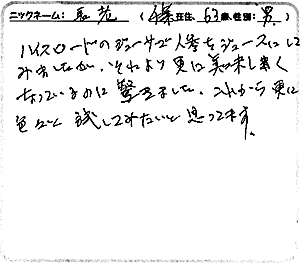 ニックネーム: (在住、63歳、性別: 男)
ハイスロードのジューサで人参をジュースにして
みましたが、それより更に美味しく
なっているのに驚きました。これから更に
色々と試してみたいと思ってます。